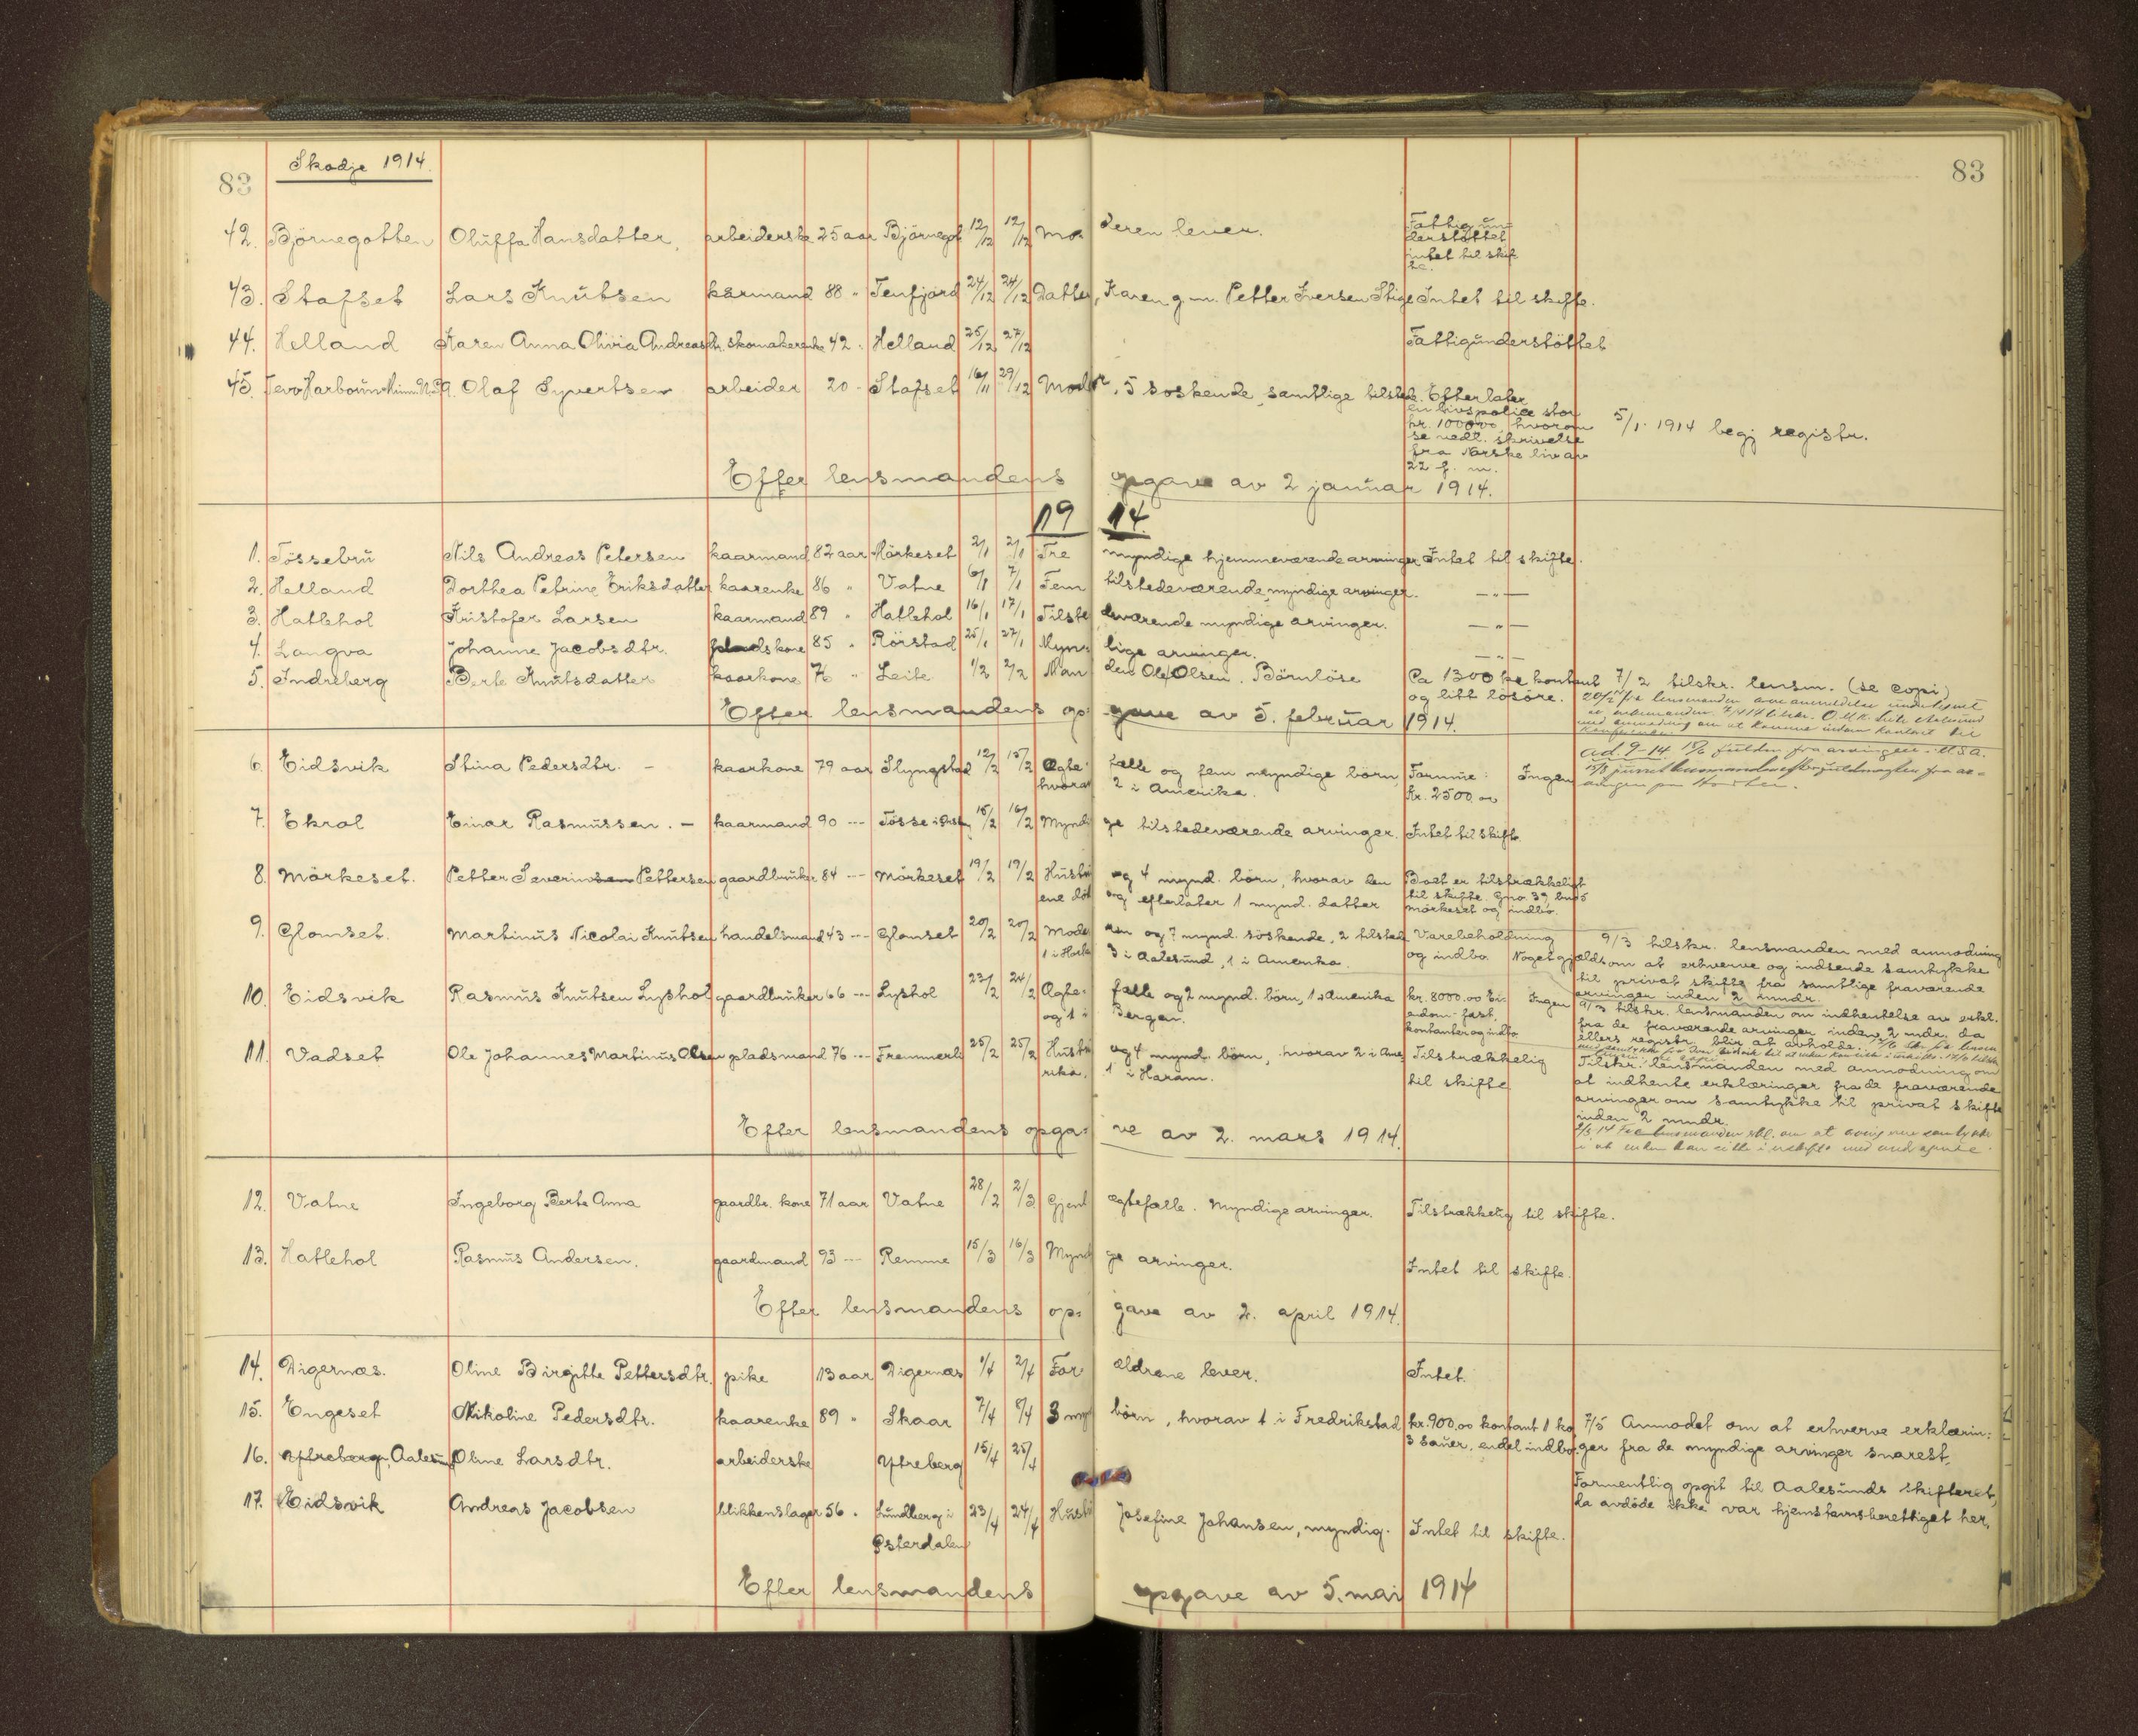 83 Skodje 1914. 83
42. Björnegotten Oluffa Hansdatter, arbeiderske 25 aar Björnegot 12/12 12/12 Moderen lever. Fattigun=
derstöttet
intet til skif
te.
43. Stafset Lars Knutsen kårmand 88 " Tenfjord 24/12 24/12 Datter, Karen g. m. Petter Iversen Stige Intet til skifte.
44. Helland Karen Anna Olivia Andreasdtr. skomakerenke 42 " Helland 25/12 27/12 Fattigunderstöttet
45. Olaf Syvertsen arbeider 20 - Stafset 16/11 29/12 Moder, 5 soskende, samtlige tilstede. Efterlater
en livspolice stor
kr. 1000.00 hvorom 5/1. 1914 begj registr.
se vedl. skrivelse
fra Norske liv av
22 f. m.
Efter lensmandens opgave av 2 januar 1914.
1914
1. Tössebru Nils Andreas Petersen kaarmand 82 aar Mörkeset 2/1 2/1 Tre myndige hjemmeværende arvinger Intet til skifte.
2. Helland Dorthea Petrine Eriksdatter kaarenke 86 " Vatne 6/1 7/1 Fem tilstedeværende myndige arvinger. — " —
3. Hatlehol Kristofer Larsen kaarmand 89 " Hatlehol 16/1 17/1 Tilstedeværende myndige arvinger. — " —
4. Langva Johanne Jacobsdtr. pladskone 85 " Rörstad 25/1 27/1 Myndige arvinger. — " —
5. Indreberg Berte Knutsdatter kaarkone 76 " Leite 1/2 2/2 Manden Ole Olsen. Börnlöse Ca 1300 kr kontant 7/2 tilskr. lensm. (se copi)
og litt lösöre.
Efter lensmandens opgave av 5. februar 1914.
6. Eidsvik Stina Pedersdtr. - kaarkone 79 aar Slyngstad 12/2 15/2 Ægtefælle og fem myndige börn, Formue: Ingen
hvorav 2 i Amerika. Kr. 2500.00
ad. 9-14 15/6 fra arvinger i U.S.A.
7. Ekrol Einar Rasmussen. - kaarmand 90 --- Tösse i 15/2 16/2 Myndige tilstedeværende arvinger. Intet til skifte
8. Mörkeset. Petter Severinsen Pettersen gaardbruker 84 --- Mörkeset 19/2 19/2 Hustru og 4 mynd. börn, hvorav den Boet er tilstrækkeligt
ene död og efterlater 1 mynd. datter til skifte. Gno 39, bno 5
mörkeset og indbo.
9. Glomset. Martinus Nicolai Knutsen handelsmand 43 --- Glomset 20/2 20/2 Moderen og 7 mynd. söskende, 2 tilstede Varebeholdning 9/3 tilskr. lensmanden med anmodning
3 i Aalesund, 1 i Amerika. og indbo. Noget gjæld om at erhverve og indsende samtykke
til privat skifte fra samtlige fraværende
arvinger inden 2 mndr.
10. Eidsvik Rasmus Knutsen Lyshol gaardbruker 66 --- Lyshol 23/2 24/2 Ægtefælle og 2 mynd. börn, 1 i Amerika kr. 8000.00 Ei= Ingen 9/3 tilskr. lensmanden om indhentelse av erkl.
og 1 i Bergen. endom fast, fra de fraværende arvinger inden 2 mdr. da
kontanter og indbo ellers registr. blir at avholde.
11. Vadset Ole Johannes Martinus Olsen pladsmand 76 --- Fremmerli 25/2 25/2 Hustru og 4 mynd. börn, hvorav 2 i Ame Tilstrækkelig Tilskr. lensmanden med anmodning om
rika. 1 i Haram. til skifte at indhente erklæringer fra de fraværende
arvinger om samtykke til privat skifte
inden 2 mndr.
Efter lensmandens opgave av 2. mars 1914.
12. Vatne Ingeborg Berte Anna gaardbr. kone 71 aar Vatne 28/2 2/3 Gjenl ægtefælle. Myndige arvinger. Tilstrækkelig til skifte.
13. Hatlehol Rasmus Andersen. gaardmand 93 --- Remme 15/3 16/3 Myndige arvinger. Intet til skifte.
Efter lensmandens opgave av 2. april 1914.
14. Digernæs. Oline Birgitte Pettersdtr. pike 13 aar Digernæs 1/4 2/4 Forældrene lever. Intet.
15. Engeset Nikoline Pedersdtr. kaarenke 89 " Skaar 7/4 8/4 3 mynd börn, hvorav 1 i Fredrikstad kr. 900,00 kontant 1 ko 7/5 Anmodet om at erhverve erklærin=
3 sauer, endel indbo. ger fra de myndige arvinger snarest.
16. Yttreberg, Aalesund Oline Larsdtr. arbeiderske Yttreberg 15/4 25/4
Formentlig opgit til Aalesunds skifteret,
da avdöde ikke var hjemstavnsberettiget her.
17. Eidsvik Andreas Jacobsen blikkenslager 56 " Lundberg i 23/4 24/4 Hustru Josefine Johansen, myndig. Intet til skifte.
Østerdalen
Efter lensmandens opgave av 5. mai 1914